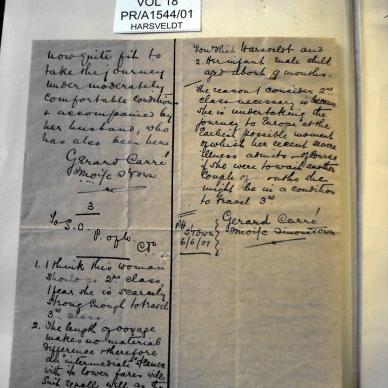 VOL 18
PR/A1544/01
HARSVELDT
now quite fit to
take the journey
under moderately
comfortable conditions
+ accompanied by
her husband, who
has also been here
Gerard Carré
S Town
3
To S.O.
P. of W. C Tn
1. I think this woman
should go 2nd class,
I fear she is scarcely
strong enough to travel
3rd class
2. The length of voyage
makes no material
difference & therefore
an "intermediate" steamer
with its lower fares will
suit equally well as the
Harsveldt and
2. Her infant male child
aged about 9 months.
The reason I consider 2nd
class necessary is because
she is undertaking the
journey to Europe at the
earliest possible moment
of which her recent severe
illness admits – of course
if she were to wait another
couple of months she
might be in a condition
to travel 3rd
Gerard Carré
Simonstown
S'Town
6/6/01